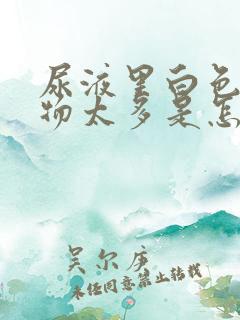 尿液里白色
物太多是怎
吴尔库
未经同意禁止转载